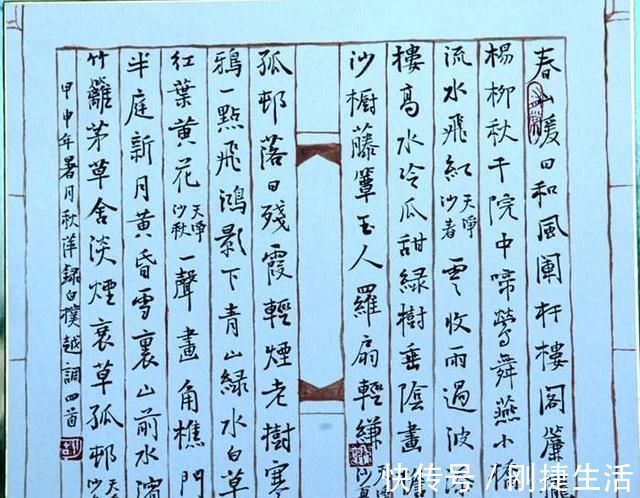 春山暖日和風闌杆樓閣簾
楊柳秋千院中啼鶯舞燕小橋
流水飛紅 天淨沙春 雲收雨過波添
樓高水冷瓜甜綠樹垂陰畫
沙櫥藤簟玉人羅扇輕縑
孤邨落日殘霞輕煙老樹寒
鴉一點飛鴻影下青山綠水白草
紅葉黃花 天淨沙秋 一聲畫角樵門
半庭新月黃昏雪裏山前水濱
竹籬茅草舍淡煙衰草孤邨
甲申年暑月秋萍錄白樸越調四首
快传号／刚捷生活